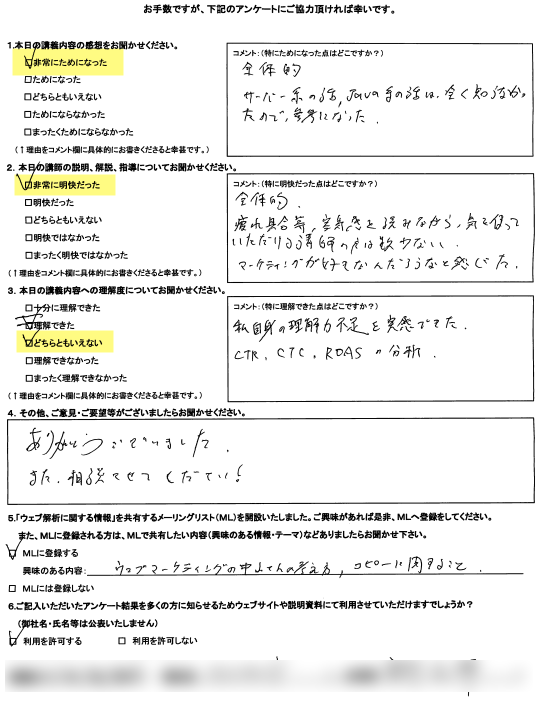 お手数ですが、下記のアンケートにご協力頂ければ幸いです。
1.本日の講義内容の感想をお聞かせください。
□非常にためになった
□ためになった
□どちらともいえない
□ためにならなかった
□まったくためにならなかった
(↑理由をコメント欄に具体的にお書きくださると幸甚です。)
コメント:(特にためになった点はどこですか?)
全体的
サーバー系の話,Javaの手の話は、全く知らなか
たので、参考になった.
2. 本日の講師の説明、解説、指導についてお聞かせください。
□非常に明快だった
□明快だった
□どちらともいえない
□明快ではなかった
□まったく明快ではなかった
(↑理由をコメント欄に具体的にお書きくださると幸甚です。)
コメント:(特に明快だった点はどこですか?)
全体的.
疲れ具合等,空気感を読みながら,気を使って
いただける講師の方は数少ない.
マーケティングが好きなんだろうなと感じた.
3. 本日の講義内容への理解度についてお聞かせください。
□十分に理解できた
□理解できた
□どちらともいえない
□理解できなかった
□まったく理解できなかった
(↑理由をコメント欄に具体的にお書きくださると幸甚です。)
コメント:(特に理解できた点はどこですか?)
私自身の理解力不足を実感できた.
CTR、CTC、ROASの分析.
4. その他、ご意見・ご要望等がございましたらお聞かせください。
ありがとうございました.
また、相談させてください!
5.「ウェブ解析に関する情報」を共有するメーリングリスト(ML)を開設いたしました。ご興味があれば是非、MLへ登録をしてください。
また、MLに登録される方は、MLで共有したい内容(興味のある情報・テーマ)などありましたらお聞かせ下さい。
□ MLに登録する
興味のある内容: ウェブマーケティングの中山さんの考え方,コピーに関すること.
□ MLには登録しない
6.ご記入いただいたアンケート結果を多くの方に知らせるためウェブサイトや説明資料にて利用させていただけますでしょうか?
(御社名・氏名等は公表いたしません)
□ 利用を許可する □ 利用を許可しない